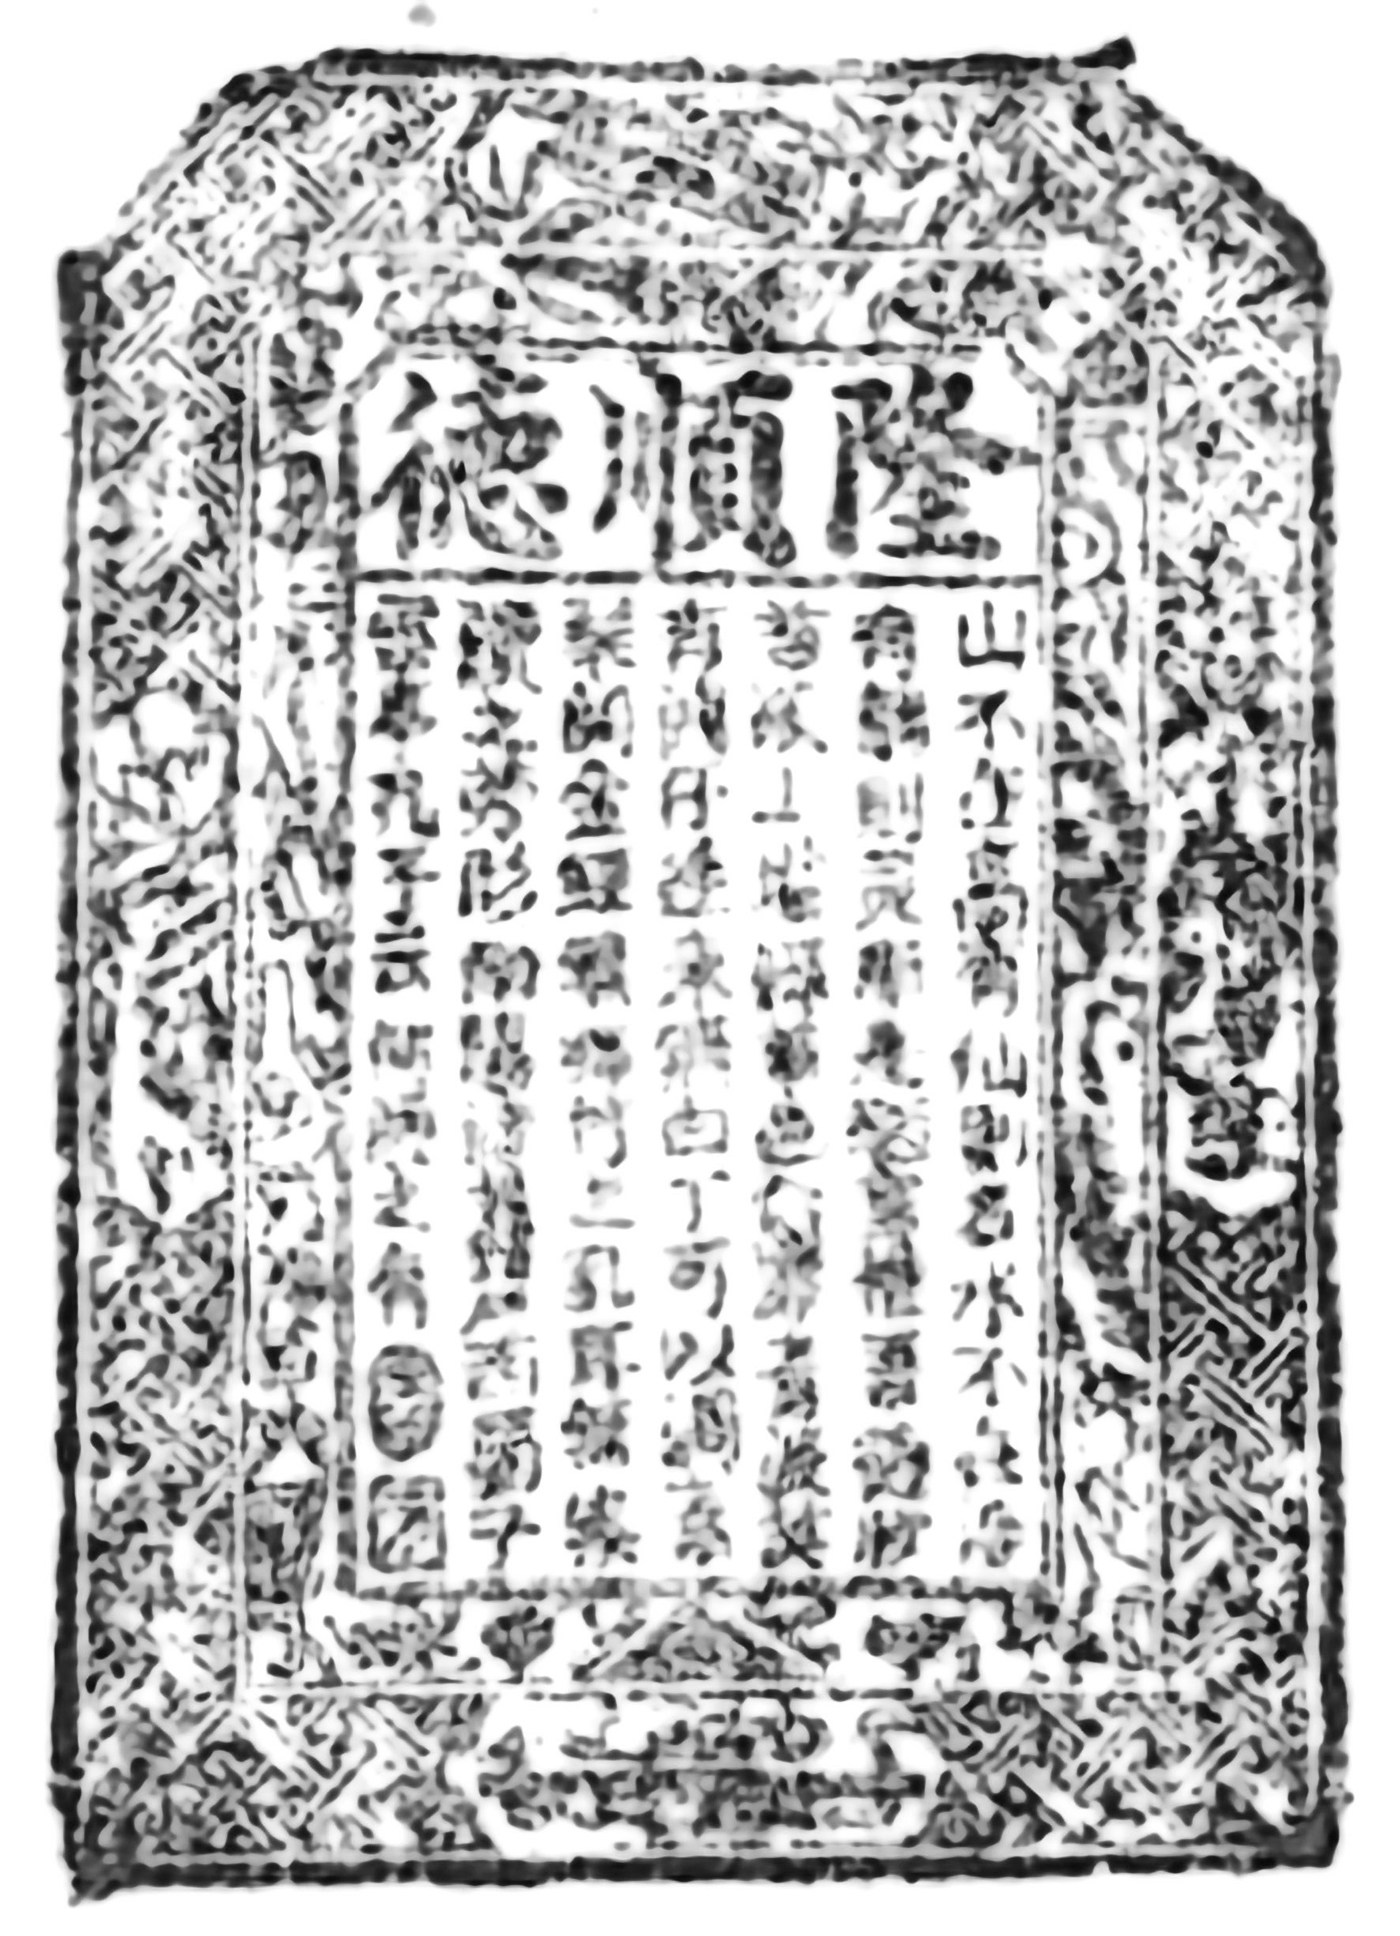 隆順德
山不在高有仙則名水不在深
有龍則靈斯是陋室惟吾德馨
苔痕上階綠草色入簾青談笑
有鴻儒往來無白丁可以調素
琴閱金經無絲竹之亂耳無案
牘之勞形南陽諸葛廬西蜀子
雲亭孔子云何陋之有